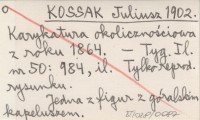 KOSSAK Juliusz 1902.
Karykatura okolicznościowa
z roku 1864. — Tyg. Il.
nr 50: 984, il. Tylko reprod.
rysunku.
Jedna z figur z góralskim
kapeluszem.